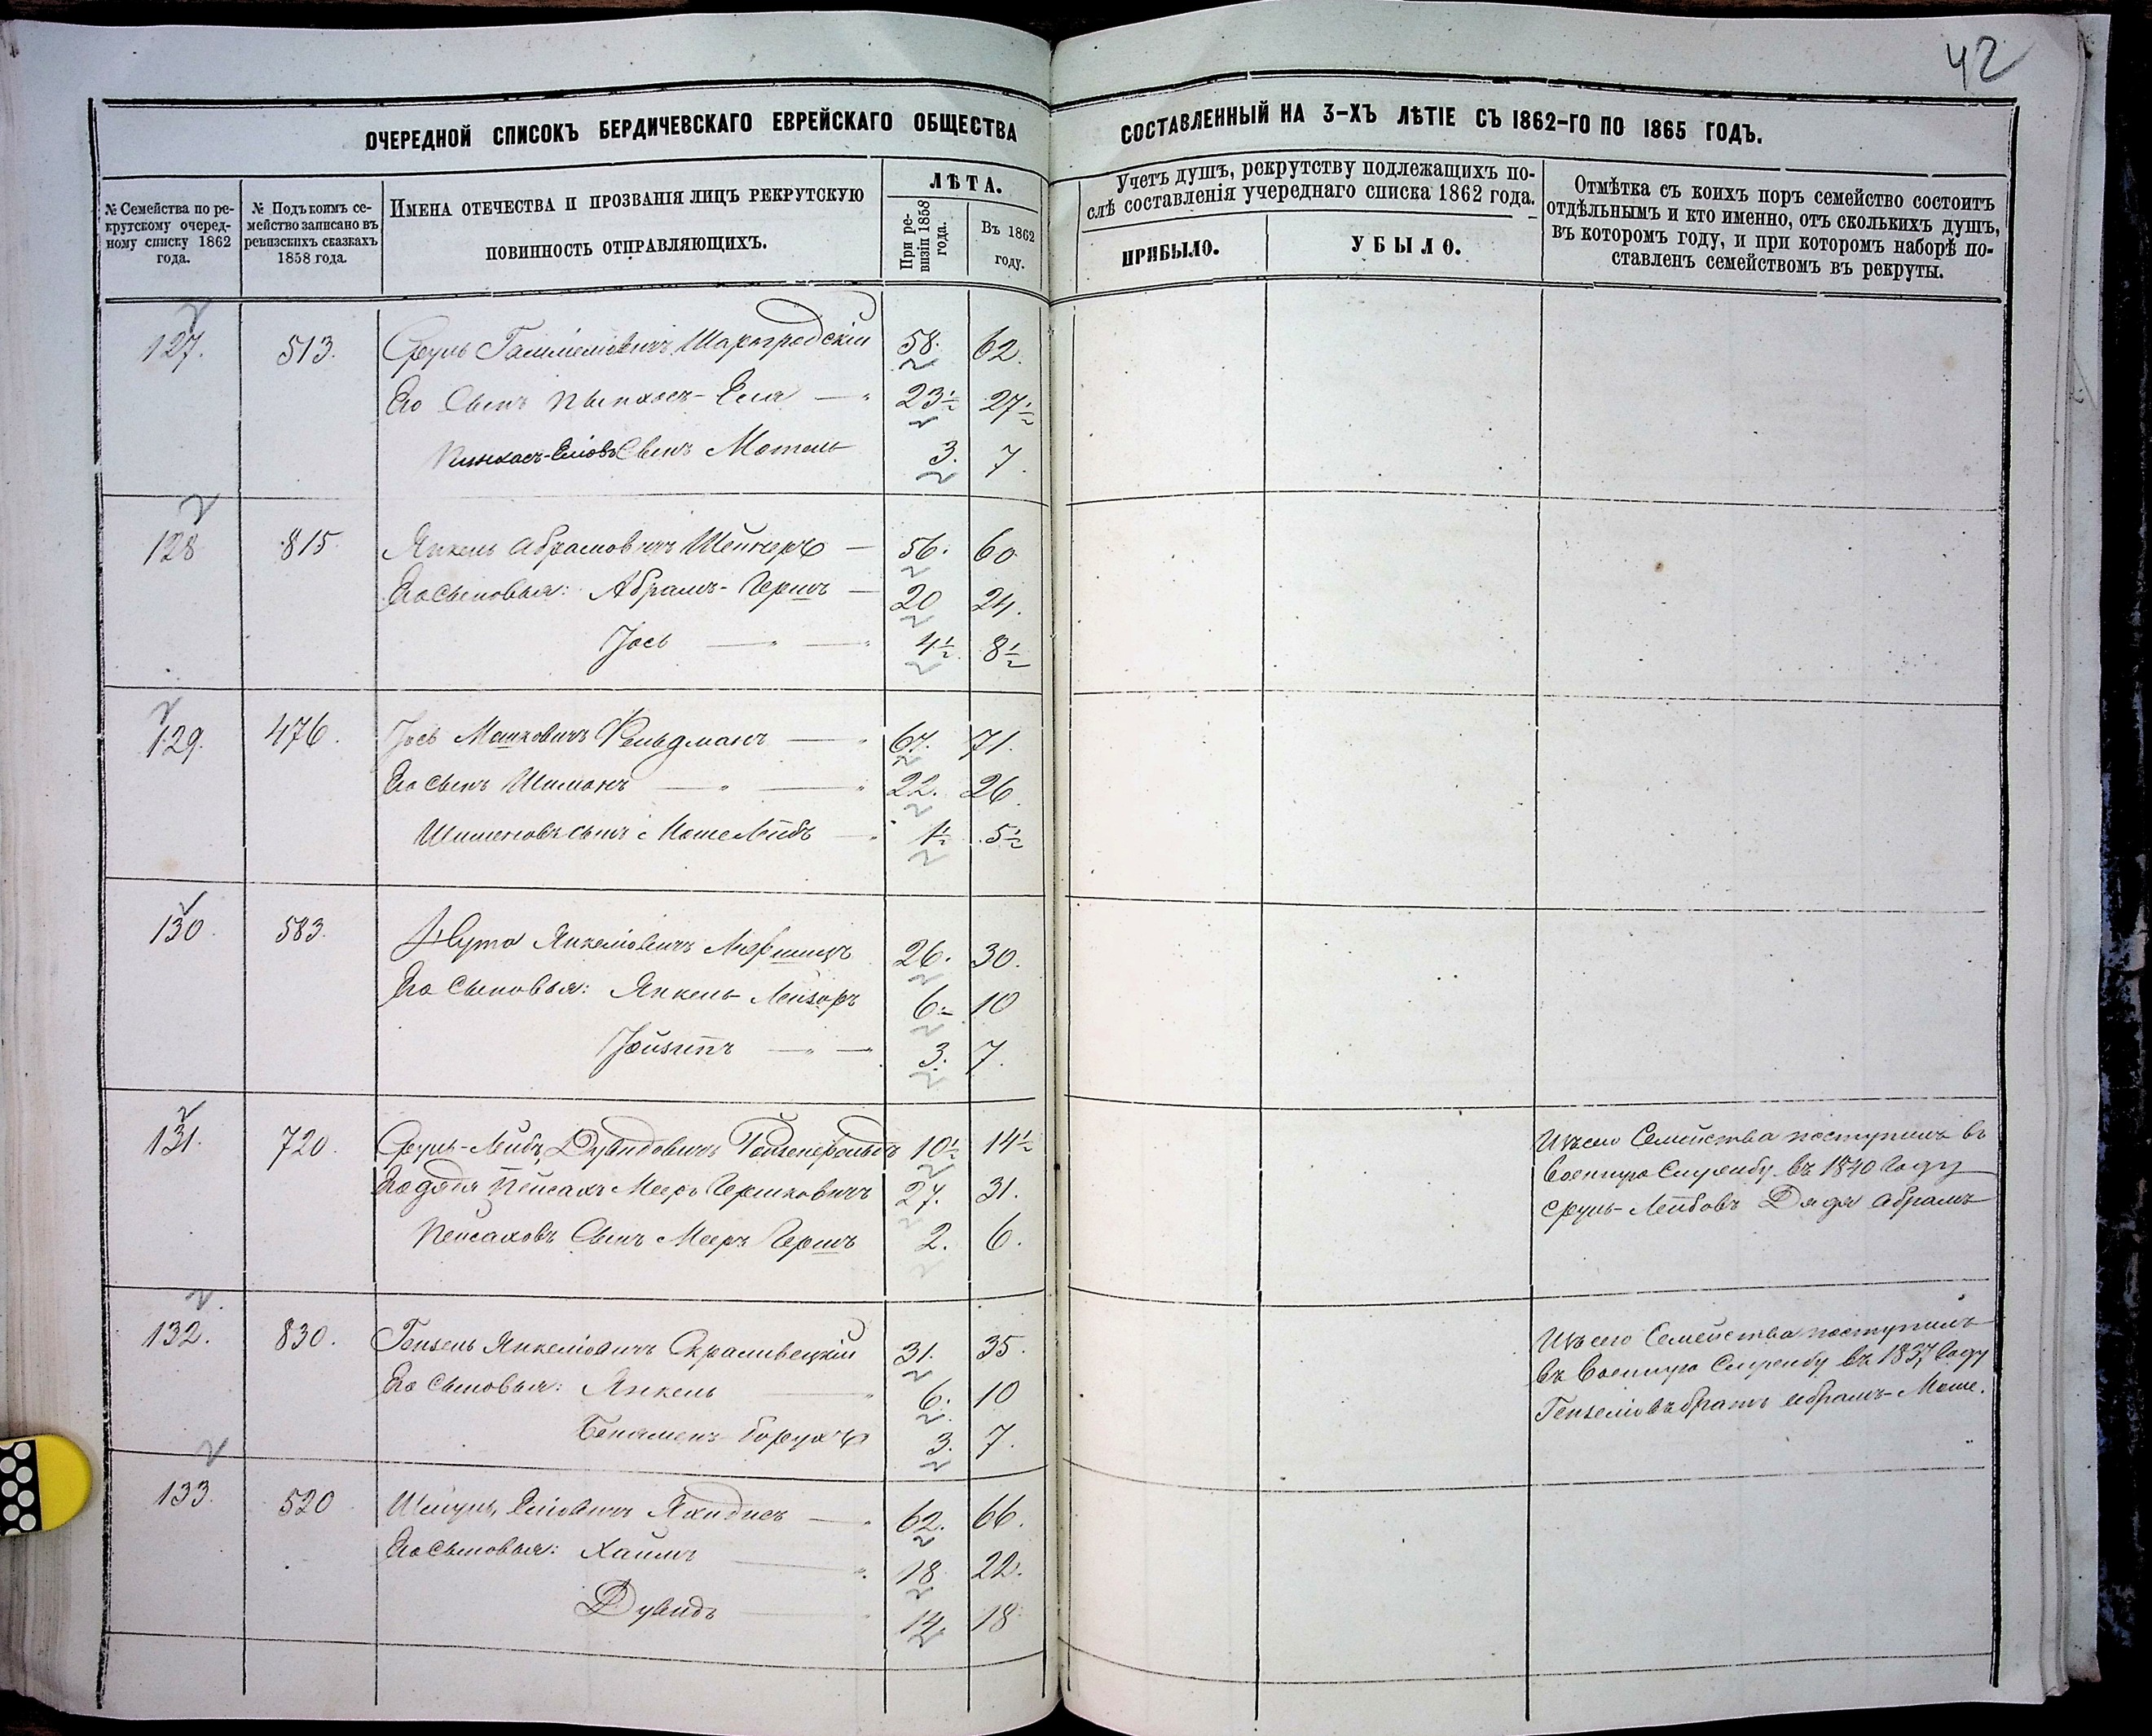 42
ОЧЕРЕДНОЙ СПИСОКЪ БЕРДИЧЕВСКАГО ЕВРЕЙСКАГО ОБЩЕСТВА СОСТАВЛЕННЫЙ НА 3-ХЪ ЛѢТІЕ СЪ 1862-ГО ПО 1865 ГОДЪ.
№ Семейства по ре-
крутскому очеред-
ному списку 1862
года.
№ Подъ коимъ се-
мейство записано въ
ревизскихъ сказкахъ
1858 года.
ИМЕНА ОТЕЧЕСТВА И ПРОЗВАНІЯ ЛИЦЪ РЕКРУТСКУЮ
ПОВИННОСТЬ ОТПРАВЛЯЮЩИХЪ.
ЛѢТА.
При ре-
визіи 1858
года.
Въ 1862
году.
Учетъ душъ, рекрутству подлежащихъ по-
слѣ составленія учереднаго списка 1862 года.
ПРИБЫЛО.
УБЫЛО.
Отмѣтка съ коихъ поръ семейство состоитъ
отдѣльнымъ и кто именно, отъ сколькихъ душъ,
въ которомъ году, и при которомъ наборѣ по-
ставленъ семействомъ въ рекруты.
127. 513. Сруль Шаргородскій 58. 62.
Его Сынъ Пынхосъ-Еля 23½ 27½
Пинхосъ-Еліовъ Сынъ Мотель 3. 7.
128 815 Янкель Абрамовичъ Шейнеръ 56. 60
Его Сыновья: Абрамъ-Гершъ 20 24.
Іось 4½ 8½
129. 476. Іось Мошковичъ Фельдманъ 67. 71.
Его Сынъ Шимонъ 22. 26.
Шимоновъ сынъ Моше Лейбъ 1½ 5½
130. 583. Янкеліовичъ 26. 30.
Его Сыновья: Янкель-Лейзоръ 6. 10
Іойзипъ 3. 7.
131. 720. Сруль-Лейбъ Дувидовичъ 10½ 14½
Его дядя Пейсахъ Мееръ Гершковичъ 27. 31.
Пейсаховъ Сынъ Мееръ Гершъ 2. 6.
Изъ сего Семейства поступилъ въ
Военную Службу въ 1840 Году
Сруль-Лейбовъ Дядя Абрамъ
132. 830. Гензель Янкеліовичъ Скраливецкій 31. 35.
Его Сыновья: Янкель 6. 10
Беньяменъ-Борухъ 3. 7.
Изъ сего Семейства поступилъ
въ Военную Службу въ 1837 Году
Гензеліовъ братъ Абрамъ-Моше.
133. 520 Шмуль Еліовичъ 62. 66.
Его Сыновья: Хаимъ 18 22.
Дувидъ 14. 18